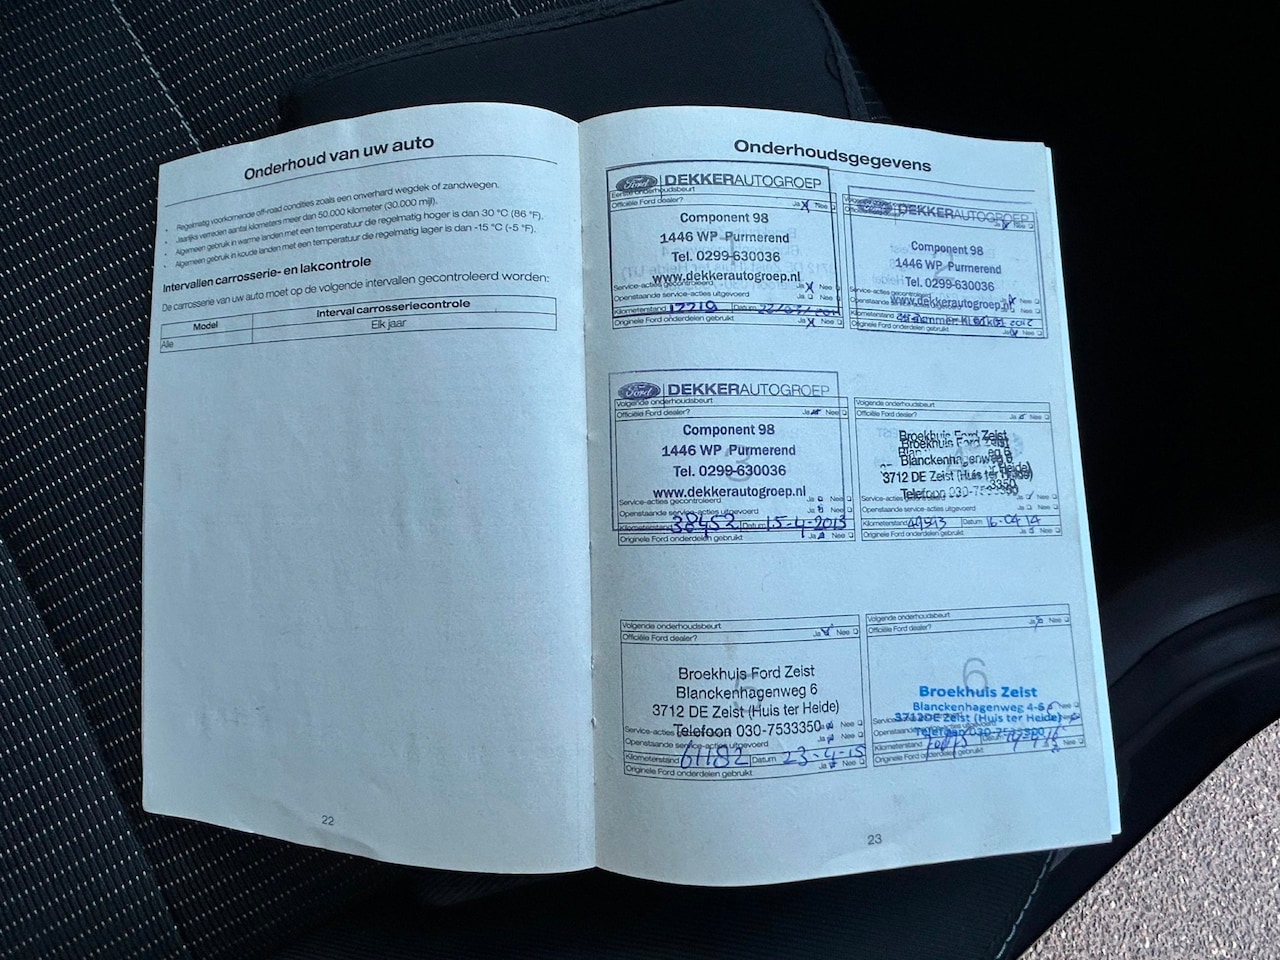 Onderhoud van uw auto
• Regelmatig voorkomende off-road condities zoals een onverhard wegdek of zandwegen.
• Jaarlijks verreden aantal kilometers meer dan 50.000 kilometer (30.000 mijl).
• Algemeen gebruik in warme landen met een temperatuur die regelmatig hoger is dan 30 °C (86 °F).
• Algemeen gebruik in koude landen met een temperatuur die regelmatig lager is dan -15 °C (-5 °F).
Intervallen carrosserie- en lakcontrole
De carrosserie van uw auto moet op de volgende intervallen gecontroleerd worden:
Model Interval carrosseriecontrole
Alle Elk jaar
22
Onderhoudsgegevens
Ford DEKKERAUTOGROEP
Eerste onderhoudsbeurt
Officiële Ford dealer? Ja Nee
Component 98
1446 WP Purmerend
Tel. 0299-630036
www.dekkerautogroep.nl
Service-acties gecontroleerd Ja Nee
Openstaande service-acties uitgevoerd Ja Nee
Kilometerstand 17719 Datum
Originele Ford onderdelen gebruikt Ja Nee
DEKKERAUTOGROEP
Ja Nee
2
Component 98
1446 WP Purmerend
Tel. 0299-630036
www.dekkerautogroep.nl
Kilometerstand
Originele Ford onderdelen gebruikt Ja Nee
Ford DEKKERAUTOGROEP
Volgende onderhoudsbeurt
Officiële Ford dealer? Ja Nee
3
Component 98
1446 WP Purmerend
Tel. 0299-630036
www.dekkerautogroep.nl
Service-acties gecontroleerd Ja Nee
Openstaande service-acties uitgevoerd Ja Nee
Kilometerstand 38452 Datum 15-4-2013
Originele Ford onderdelen gebruikt Ja Nee
Volgende onderhoudsbeurt
Officiële Ford dealer? Ja Nee
Broekhuis Ford Zeist
Blanckenhagenweg 6
3712 DE Zeist (Huis ter Heide)
Telefoon 030-7533350
Service-acties gecontroleerd Ja Nee
Openstaande service-acties uitgevoerd Ja Nee
Kilometerstand Datum 16-04-14
Originele Ford onderdelen gebruikt Ja Nee
Volgende onderhoudsbeurt
Officiële Ford dealer? Ja Nee
Broekhuis Ford Zeist
Blanckenhagenweg 6
3712 DE Zeist (Huis ter Heide)
Telefoon 030-7533350
Service-acties Ja Nee
Openstaande service-acties uitgevoerd
Kilometerstand 61182 Datum 23-4-15
Originele Ford onderdelen gebruikt Ja Nee
Volgende onderhoudsbeurt
Officiële Ford dealer? Ja Nee
6
Broekhuis Zeist
Blanckenhagenweg 4-6
3712DE Zeist (Huis ter Heide)
Telefoon 030-7533350
Kilometerstand
Originele Ford onderdelen gebruikt Ja Nee
23